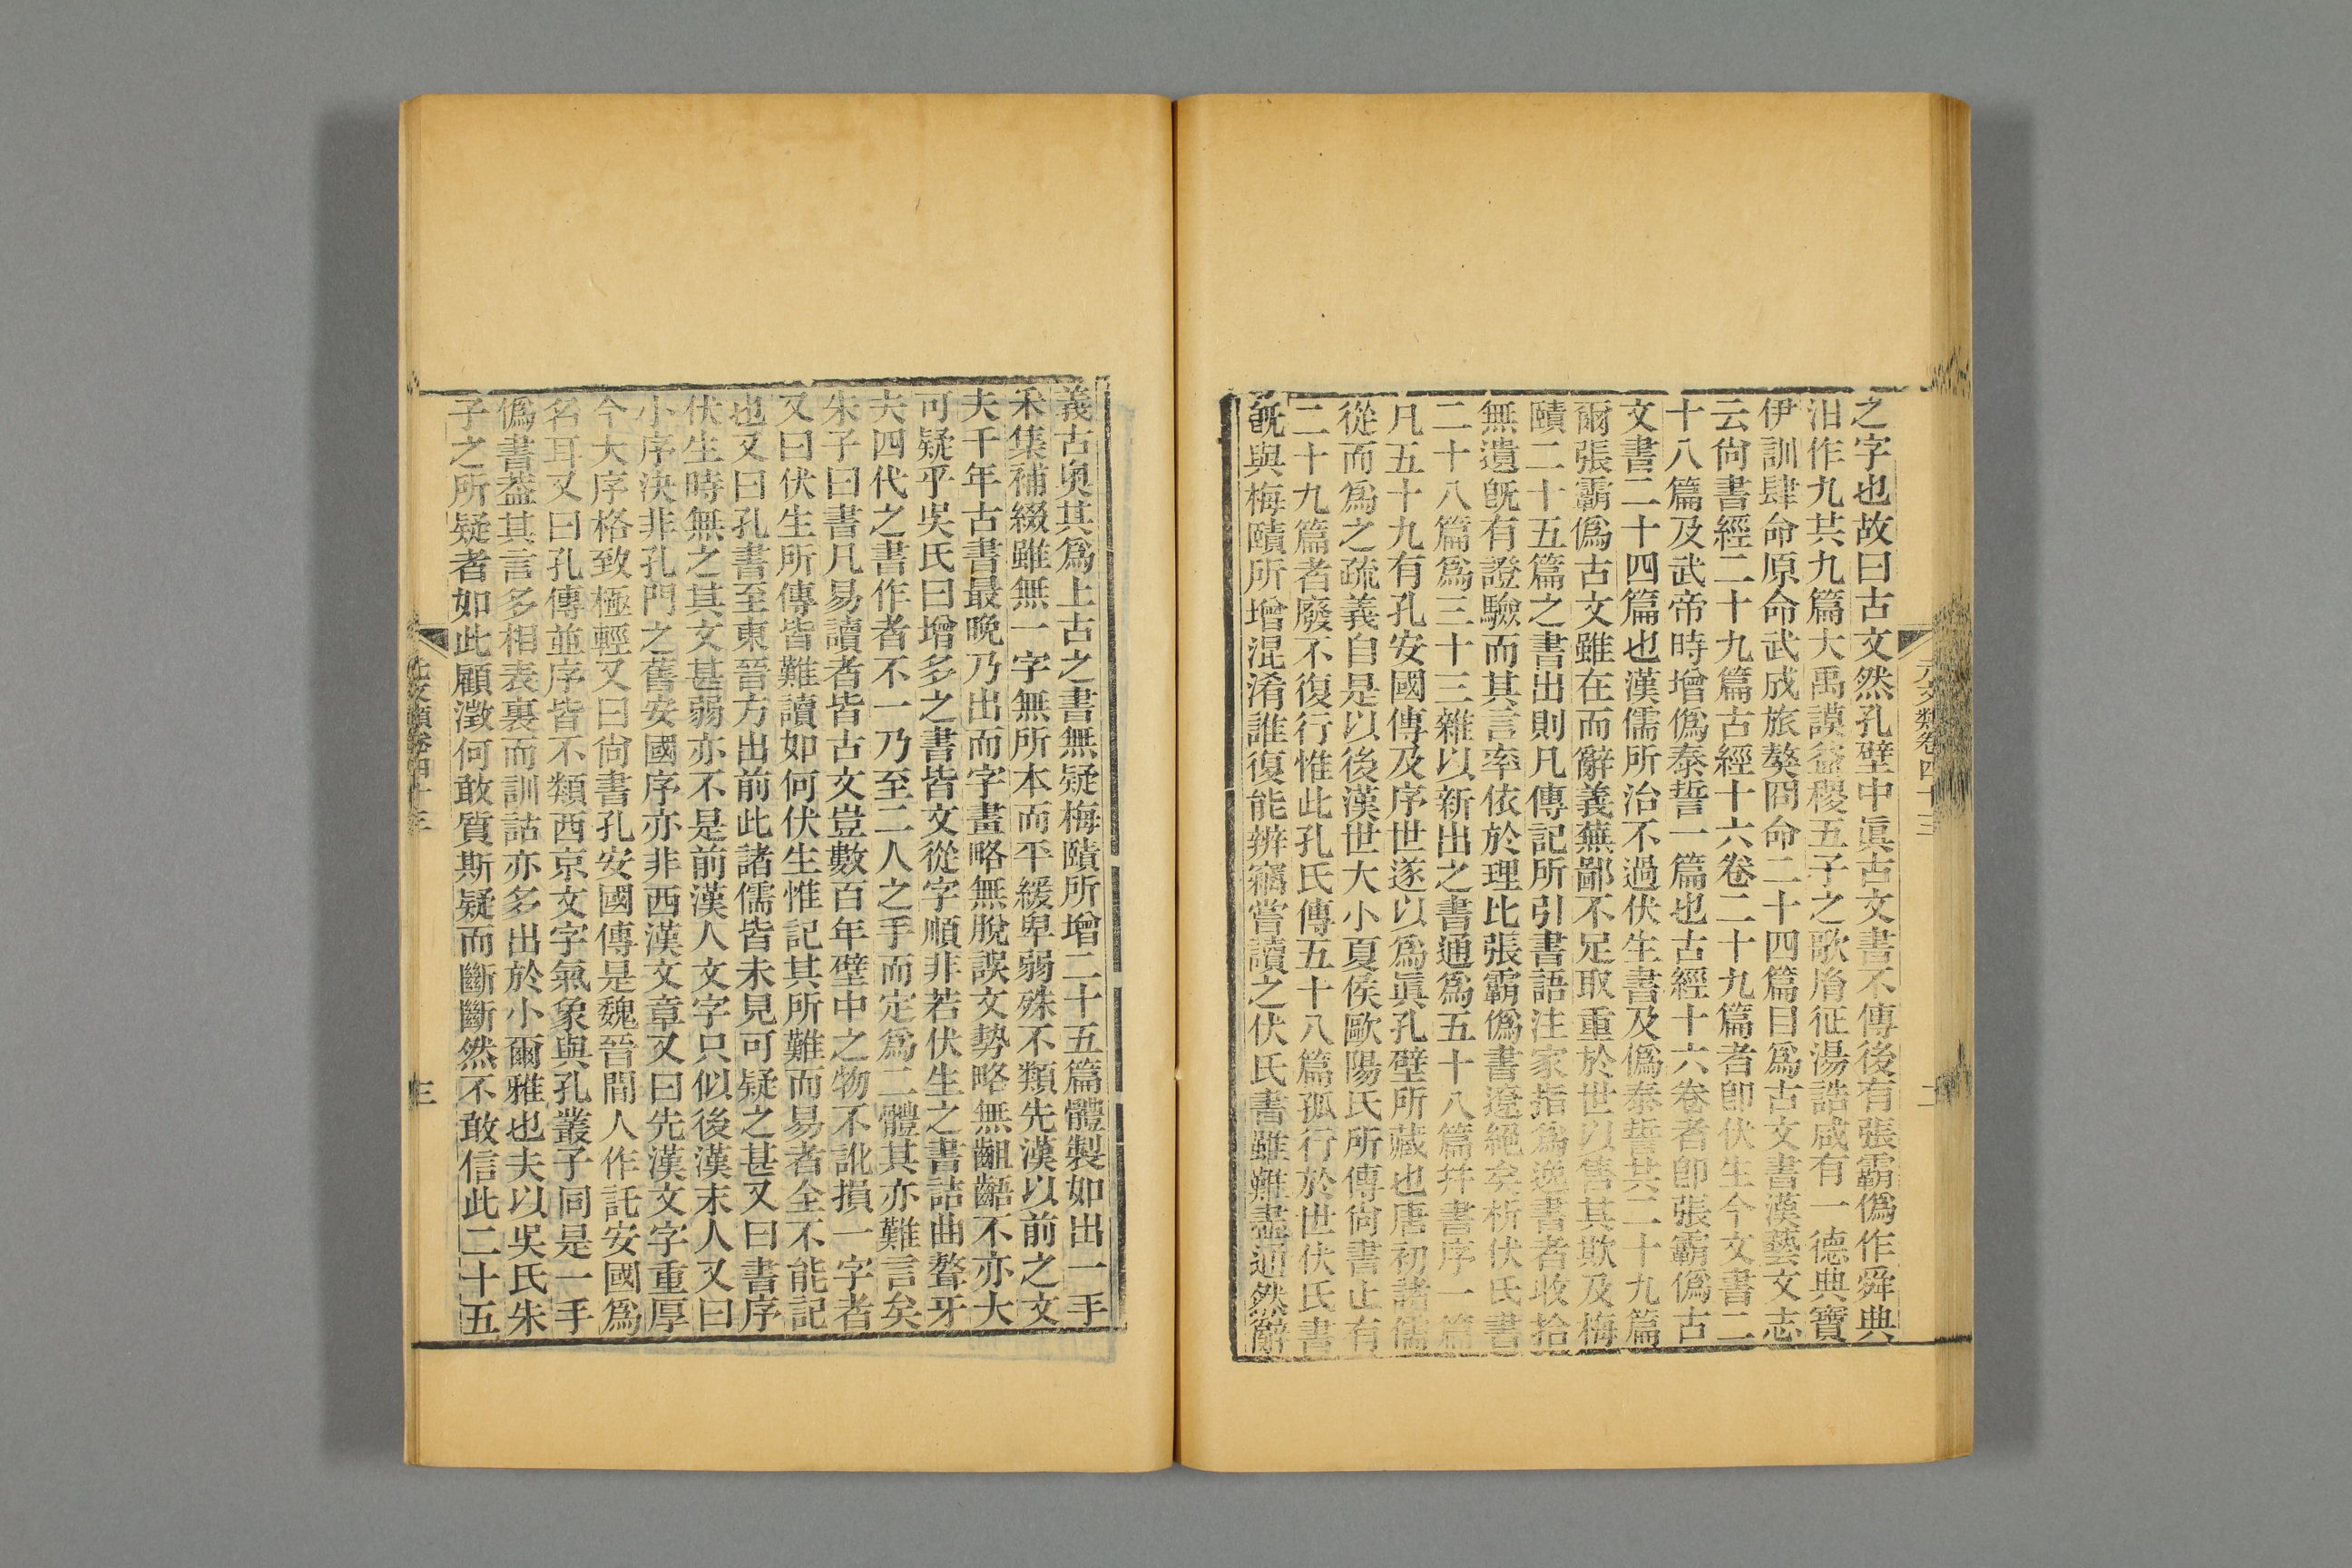 之字也故曰古文然孔壁中眞古文書不傳後有張霸僞作舜典
汨作九共九篇大禹謨益稷五子之歌𦙍征湯誥咸有一德典寶
伊訓肆命原命武成旅獒冏命二十四篇目爲古文書漢藝文志
云尙書經二十九篇古經十六卷二十九篇者卽伏生今文書二
十八篇及武帝時增僞泰誓一篇也古經十六卷者卽張霸僞古
文書二十四篇也漢儒所治不過伏生書及僞泰誓共二十九篇
爾張霸僞古文雖在而辭義蕪鄙不足取重於世以售其欺及梅
賾二十五篇之書出則凡傳記所引書語注家指爲逸書者收拾
無遺旣有證驗而其言率依於理比張霸僞書遼絕矣析伏氏書
二十八篇爲三十三雜以新出之書通爲五十八篇幷書序一篇
凡五十九有孔安國傳及序世遂以爲眞孔壁所藏也唐初諸儒
從而爲之疏義自是以後漢世大小夏侯歐陽氏所傳尙書止有
二十九篇者廢不復行惟此孔氏傳五十八篇孤行於世伏氏書
旣與梅賾所增混淆誰復能辨竊嘗讀之伏氏書雖難盡通然辭
元文類卷四十三
二
義古奧其爲上古之書無疑梅賾所增二十五篇體製如出一手
采集補綴雖無一字無所本而平緩卑弱殊不類先漢以前之文
夫千年古書最晚乃出而字畫略無脫誤文勢略無齟齬不亦大
可疑乎吳氏曰增多之書皆文從字順非若伏生之書詰曲聱牙
夫四代之書作者不一乃至二人之手而定爲二體其亦難言矣
朱子曰書凡易讀者皆古文豈數百年壁中之物不訛損一字者
又曰伏生所傳皆難讀如何伏生惟記其所難而易者全不能記
也又曰孔書至東晉方出前此諸儒皆未見可疑之甚又曰書序
伏生時無之其文甚弱亦不是前漢人文字只似後漢末人又曰
小序決非孔門之舊安國序亦非西漢文章又曰先漢文字重厚
今大序格致極輕又曰尙書孔安國傳是魏晉間人作託安國爲
名耳又曰孔傳並序皆不類西京文字氣象與孔叢子同是一手
僞書蓋其言多相表裏而訓詁亦多出於小爾雅也夫以吳氏朱
子之所疑者如此顧澂何敢質斯疑而斷斷然不敢信此二十五
元文類卷四十三
三